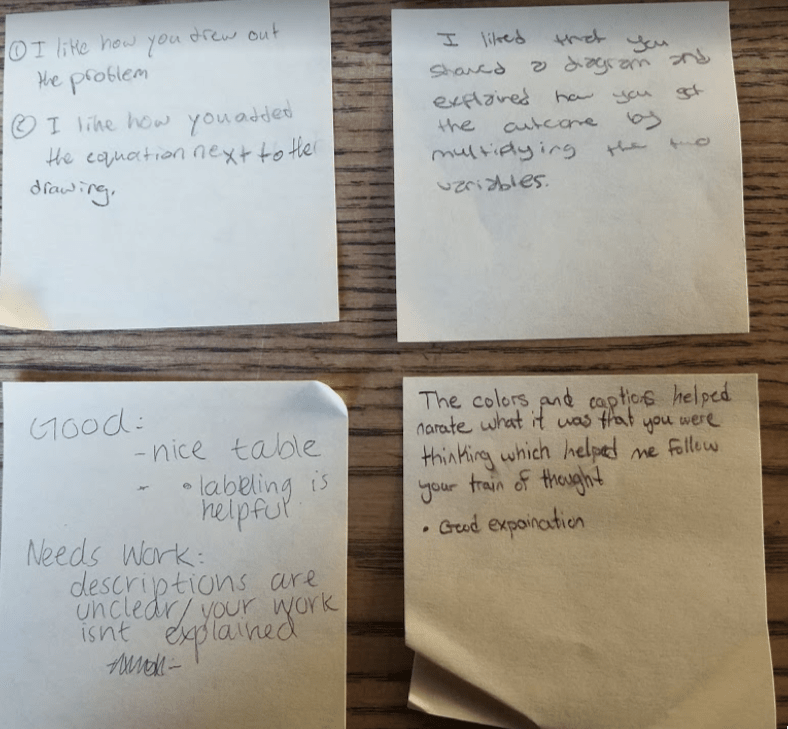 ① I like how you drew out
the problem
② I like how you added
the equation next to the
drawing.
I liked that you
shared a diagram and
explained how you got
the outcome by
multiplying the two
variables.
Good:
-nice table
- • labeling is
helpful
Needs Work:
descriptions are
unclear/your work
isnt explained
The colors and captions helped
narate what it was that you were
thinking which helped me follow
your train of thought
• Good expaination